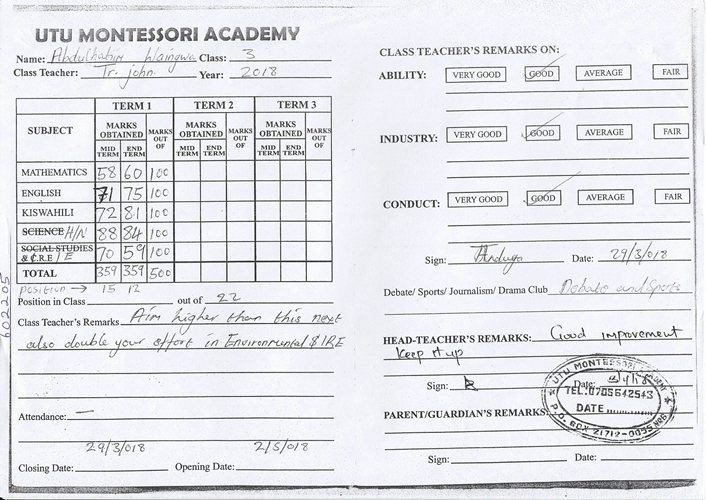 UTU MONTESSORI ACADEMY
Name: Abdulhakim Waingwa Class: 3
Class Teacher: Tr. john. Year: 2018
SUBJECT TERM 1 TERM 2 TERM 3
MARKS OBTAINED MARKS OUT OF MARKS OBTAINED MARKS OUT OF MARKS OBTAINED MARKS OUT OF
MID TERM END TERM MID TERM END TERM MID TERM END TERM
MATHEMATICS 58 60 100
ENGLISH 71 75 100
KISWAHILI 72 81 100
SCIENCE H/N 88 84 100
SOCIAL STUDIES
& C.R.E IE 70 59 100
TOTAL 359 359 500
Position → 15 12
Position in Class out of 22
Class Teacher's Remarks Aim higher than this next
also double your effort in Environmental & IRE
Attendance: —
29/3/018 2/5/018
Closing Date: Opening Date:
602205
CLASS TEACHER'S REMARKS ON:
ABILITY: VERY GOOD GOOD AVERAGE FAIR
INDUSTRY: VERY GOOD GOOD AVERAGE FAIR
CONDUCT: VERY GOOD GOOD AVERAGE FAIR
Sign: Date: 29/3/018
Debate/ Sports/ Journalism/ Drama Club Debate and Sports
HEAD-TEACHER'S REMARKS: Good improvement
Keep it up
Sign: Date:
UTU MONTESSORI
TEL.0705642543
DATE
PARENT/GUARDIAN'S REMARKS:
Sign: Date: